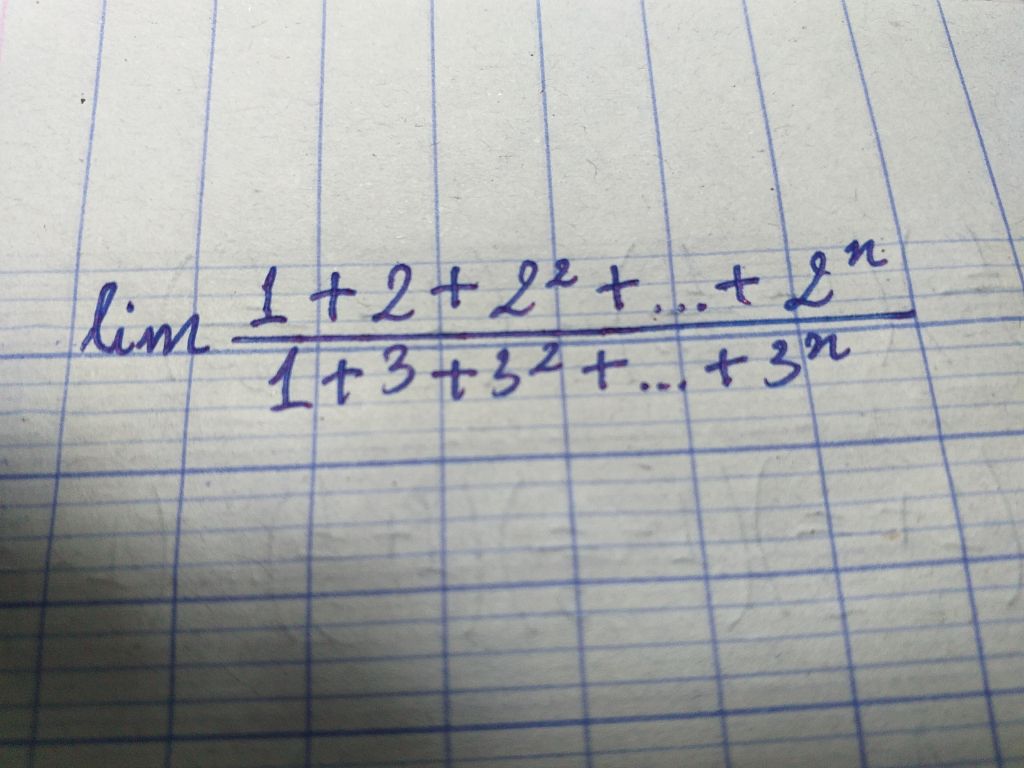 lim 1 + 2 + 2² + ... + 2ⁿ
1 + 3 + 3² + ... + 3ⁿ